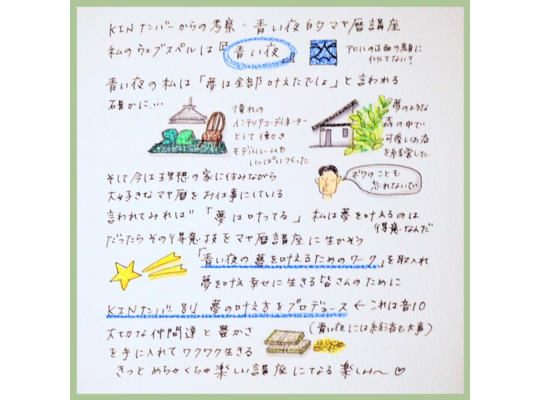 KINナンバーからの考察・青い夜的マヤ暦講座
私のウェブスペルは『青い夜』
青い夜の私は「夢は全部叶えたでしょ」と言われる
確かに…
憧れの
インテリアコーディネーター
として働き
モデルルームや
いっぱいつくった
夢のような
森の中で
可愛いお店
を経営した
そして今は理想の家に住みながら
大好きなマヤ暦をお仕事にしている
ボクのことも
忘れないで
言われてみれば「夢は叶ってる」私は夢を叶えるのは
得意なんだ
だったらその得意技をマヤ暦講座に生かそう
「青い夜の夢を叶えるためのワーク」を取入れ
夢を叶え幸せに生きる皆さんのために
KINナンバー別 夢の叶え方をプロデュース ← これは音10
大切な仲間達と豊かさ
(青い夜には経済も大事)
を手に入れてワクワク生きる
きっとめちゃくちゃ楽しい講座になる 楽しみ〜♡